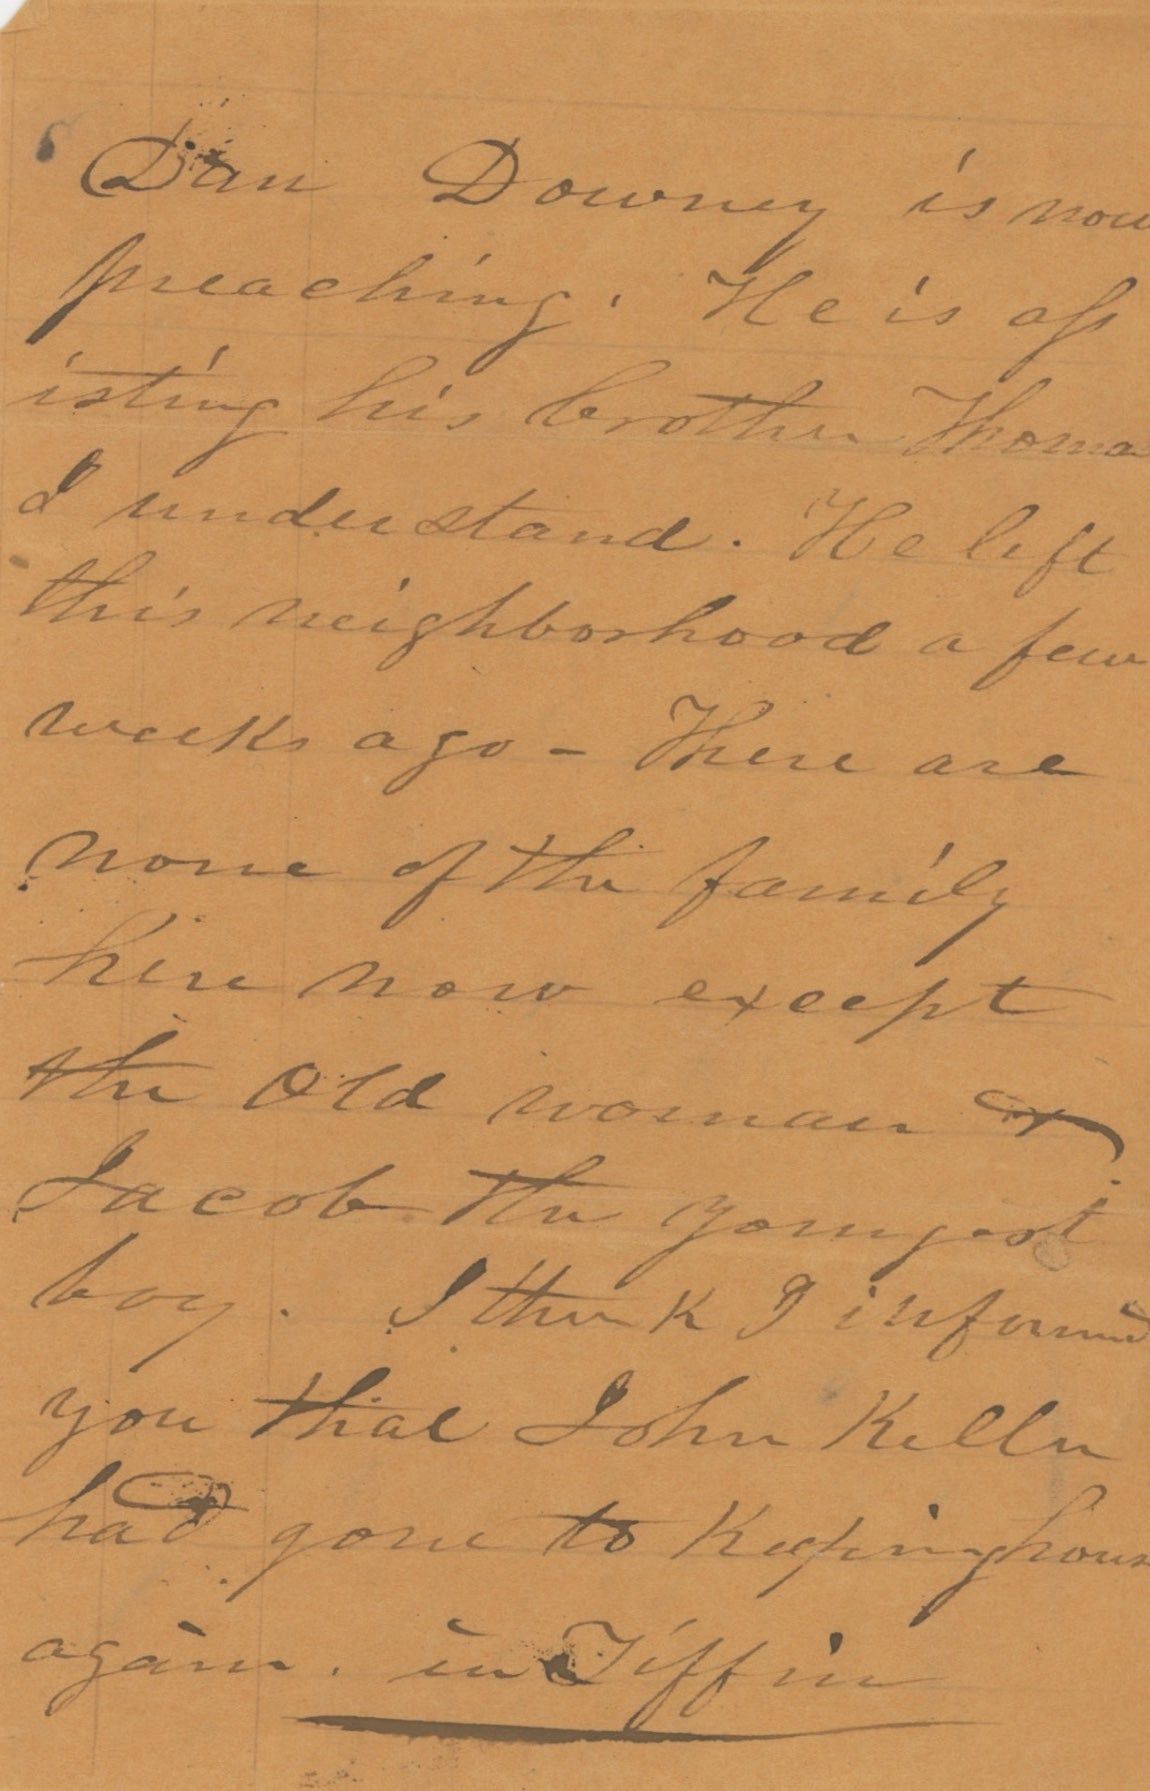 Dan Downey is now
preaching. He is ass
isting his brother Thomas
I understand. He left
this neighborhood a few
weeks ago - There are
none of the family
here now except
the Old woman &
Jacob the youngest
boy. I think I informed
you that John Keller
had gone to Keeping house
again. in Tiffin